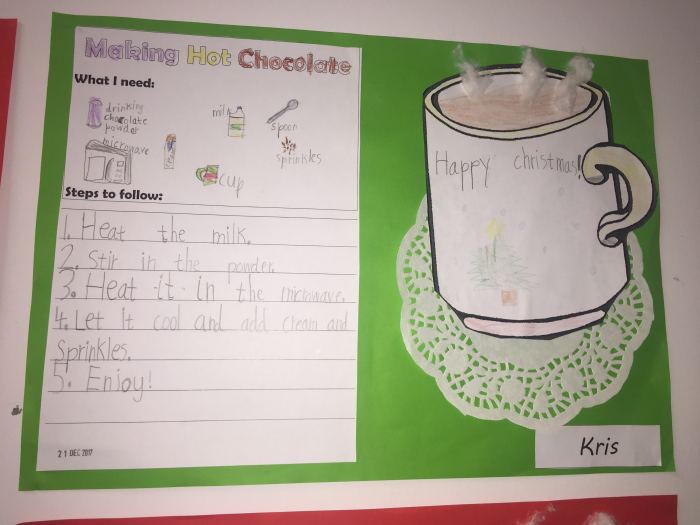 Making Hot Chocolate
What I need:
drinking
chocolate
powder
milk
spoon
microwave
sprinkles
cup
Steps to follow:
1. Heat the milk.
2. Stir in the powder.
3. Heat it in the microwave.
4. Let It cool and add cream and
Sprinkles.
5. Enjoy!
21 DEC 2017
Happy christmas!
Kris